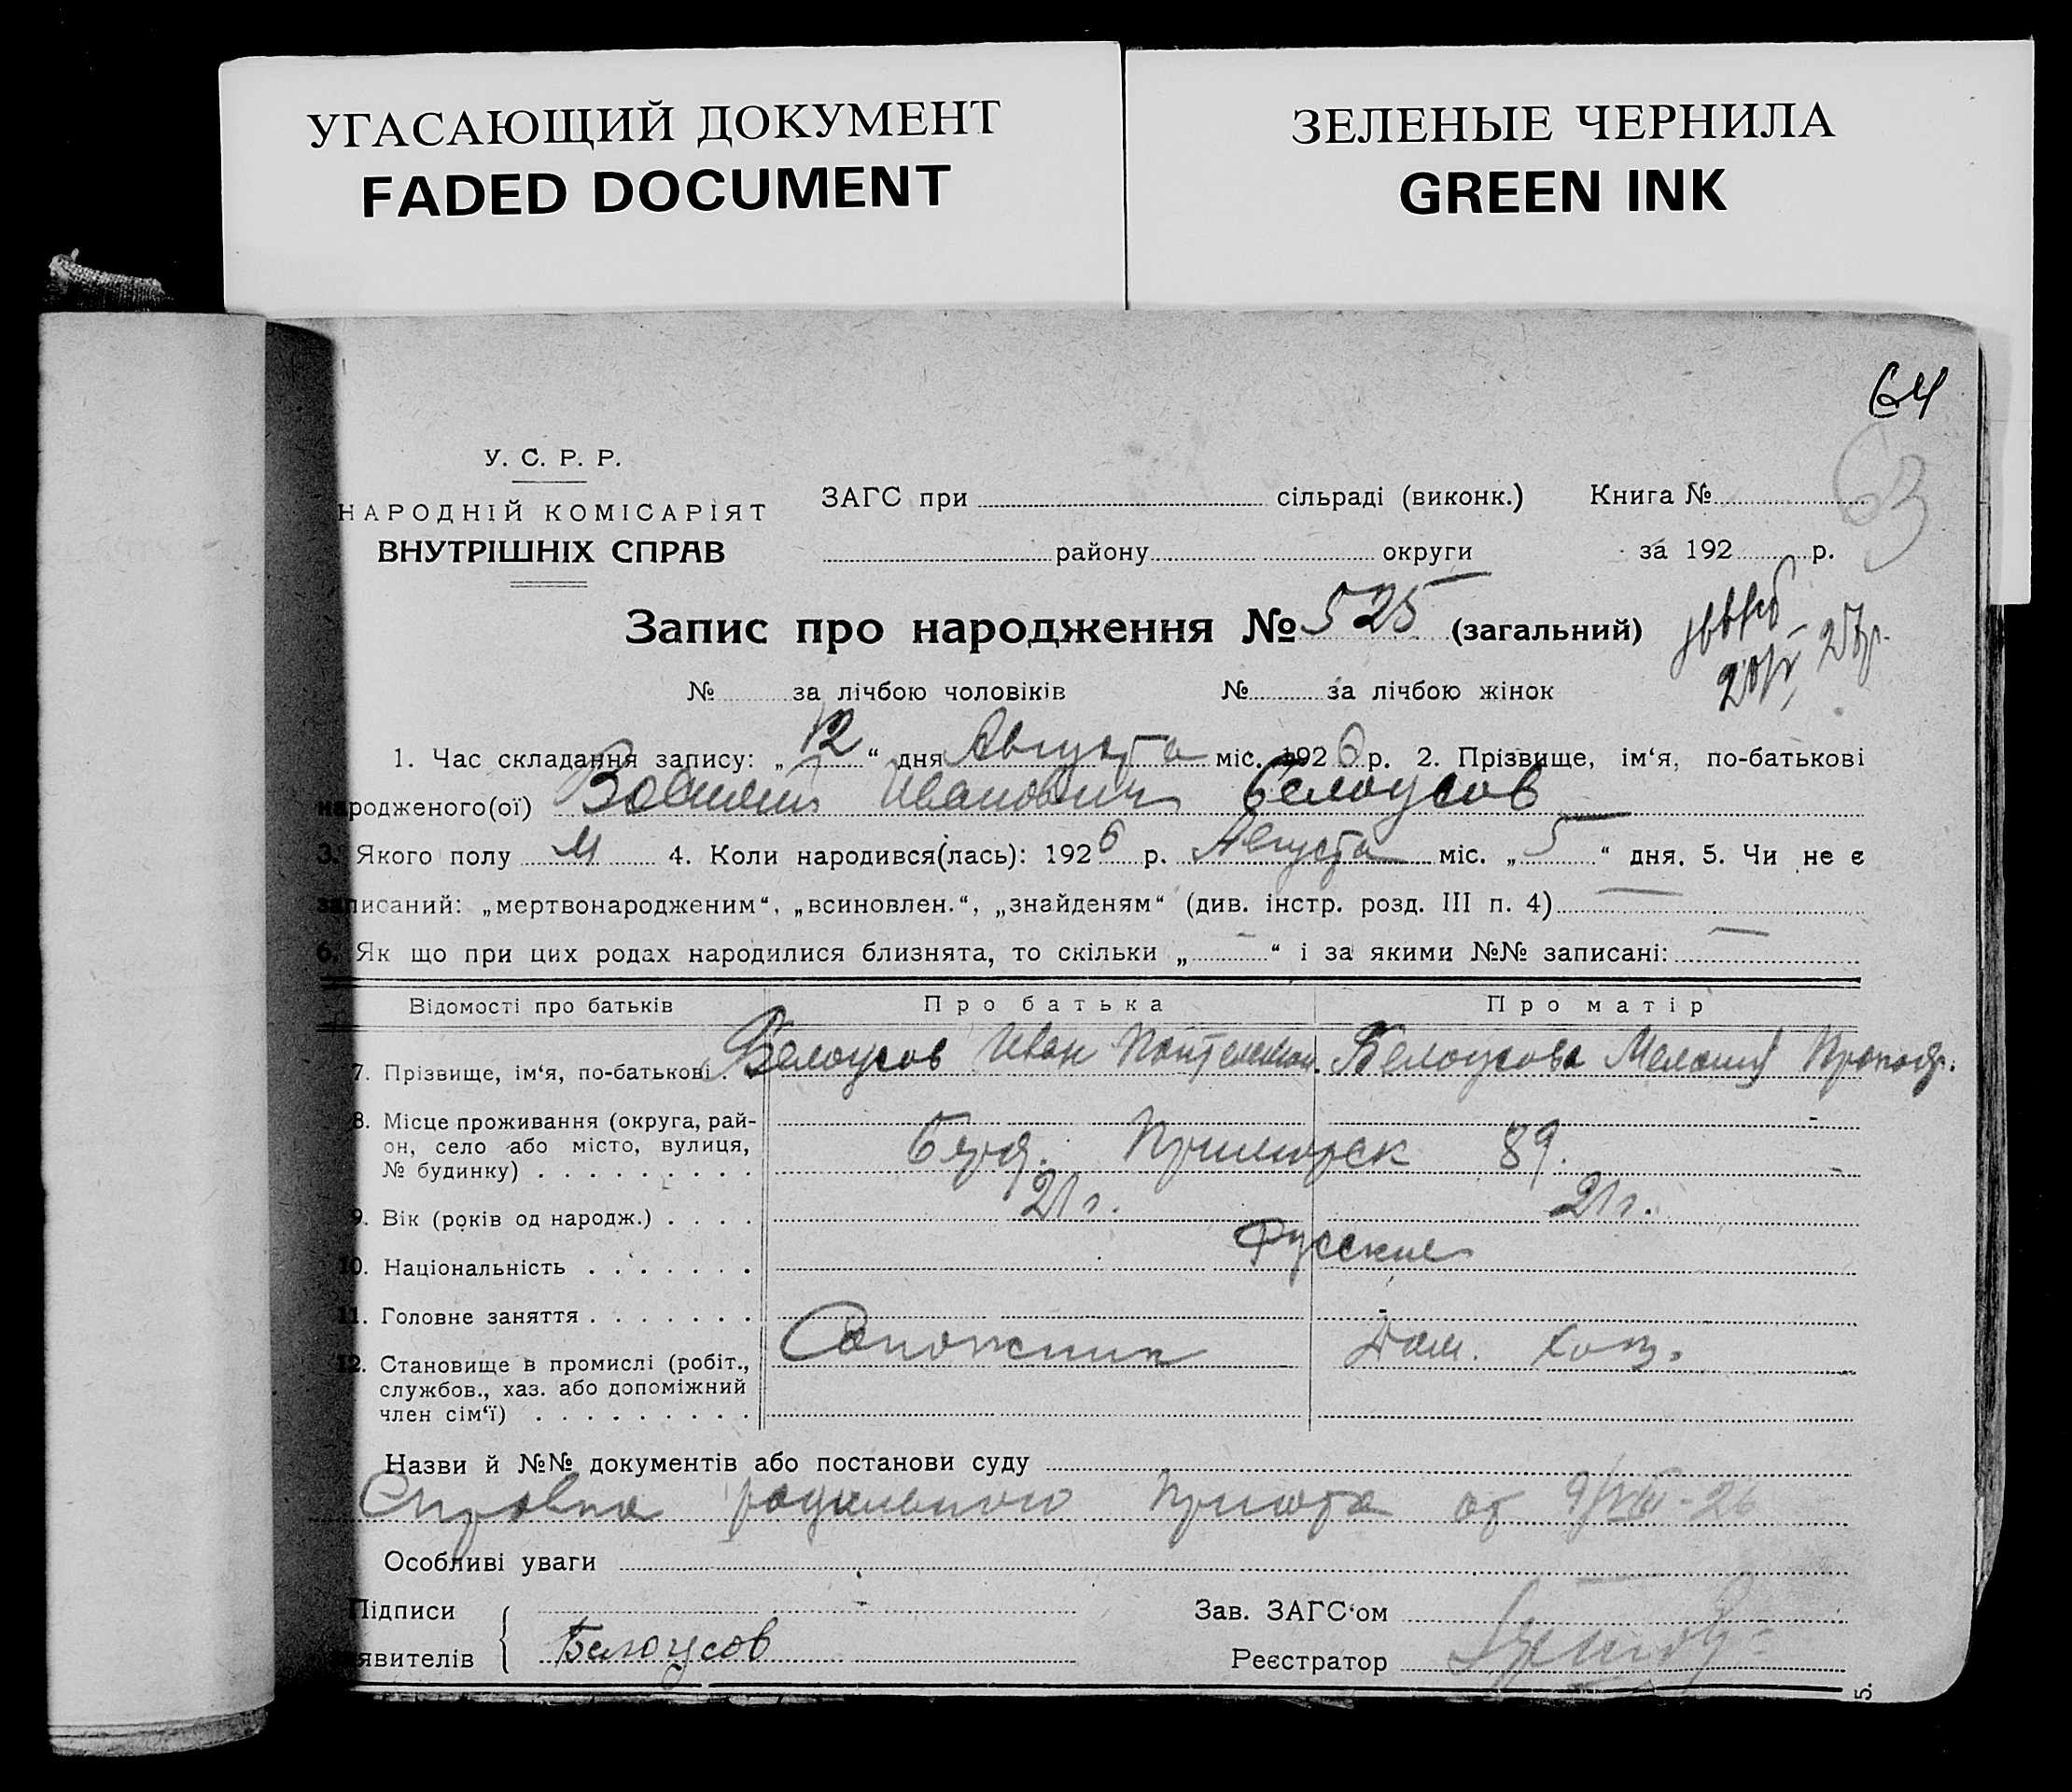 УГАСАЮЩИЙ ДОКУМЕНТ
FADED DOCUMENT
ЗЕЛЕНЫЕ ЧЕРНИЛА
GREEN INK
64
63
У. С. Р. Р.
НАРОДНІЙ КОМІСАРІЯТ
ВНУТРІШНІХ СПРАВ
ЗАГС при сільраді (виконк.) Книга №
району округи за 192 р.
Запис про народження № 525 (загальний)
№ за лічбою чоловіків № за лічбою жінок
1. Час складання запису: „12“ дня Августа міс. 1926 р. 2. Прізвище, ім‘я, по-батькові
народженого(ої) Иванович Белоусов
3. Якого полу М 4. Коли народився(лась): 1926 р. Августа міс. „5“ дня. 5. Чи не є
записаний: „мертвонародженим“, „всиновлен.“, „знайденям“ (див. інстр. розд. III п. 4) —
6. Як що при цих родах народилися близнята, то скільки „ – “ і за якими №№ записані: —
Відомості про батьків Про батька Про матір
7. Прізвище, ім‘я, по-батькові . Белоусов Иван Белоусова
8. Місце проживання (округа, рай-
он, село або місто, вулиця,
№ будинку) . . . . . . . . . Приморск 89.
9. Вік (років од народж.) . . . . 21 г. 21 г.
10. Національність . . . . . . . Русские
11. Головне заняття . . . . . . .
Сапожник Дом. хоз.
12. Становище в промислі (робіт.,
службов., хаз. або допоміжний
член сім‘ї) . . . . . . . . .
Назви й №№ документів або постанови суду
Справка родильного приюта от 9/VIII-26
Особливі уваги
Підписи Зав. ЗАГС‘ом
явителів Белоусов Реєстратор
5.